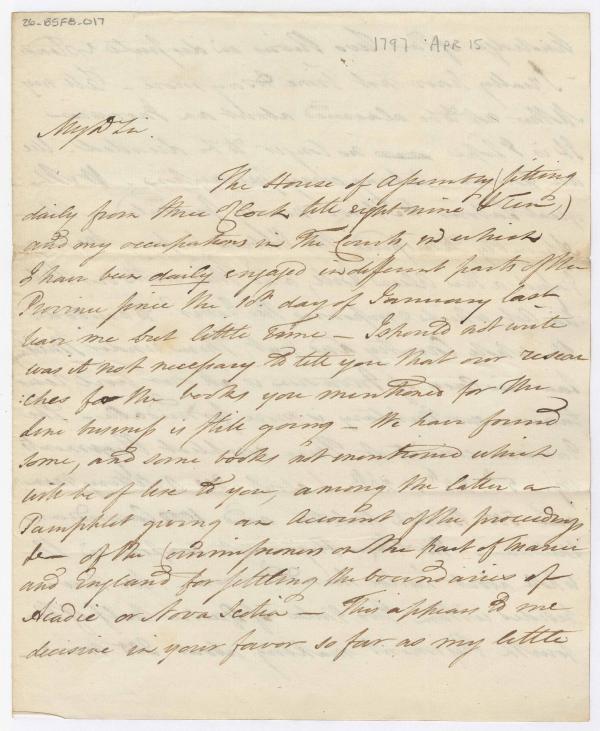 26-BSFB-017
1797 APR 15
My D Sir
The House of Assembly (sitting
daily from three o'Clock till eight nine & Ten,)
and my occupations in The Courts, in which
I have been daily engaged in different parts of the
Province since the 10th day of January last
leave me but little Time — I should not write
was it not necessary to tell you that our resear
:ches for the books you mentioned for the
Line business is still going — We have found
some, and some books not mentioned which
will be of Use to you, among the latter a
Pamphlet giving an Account of the proceedings
&c of the Commissioners on the part of France
and England for settling the boundaries of
Acadie or Nova Scotia — This appears to me
decisive in your favor so far as my little